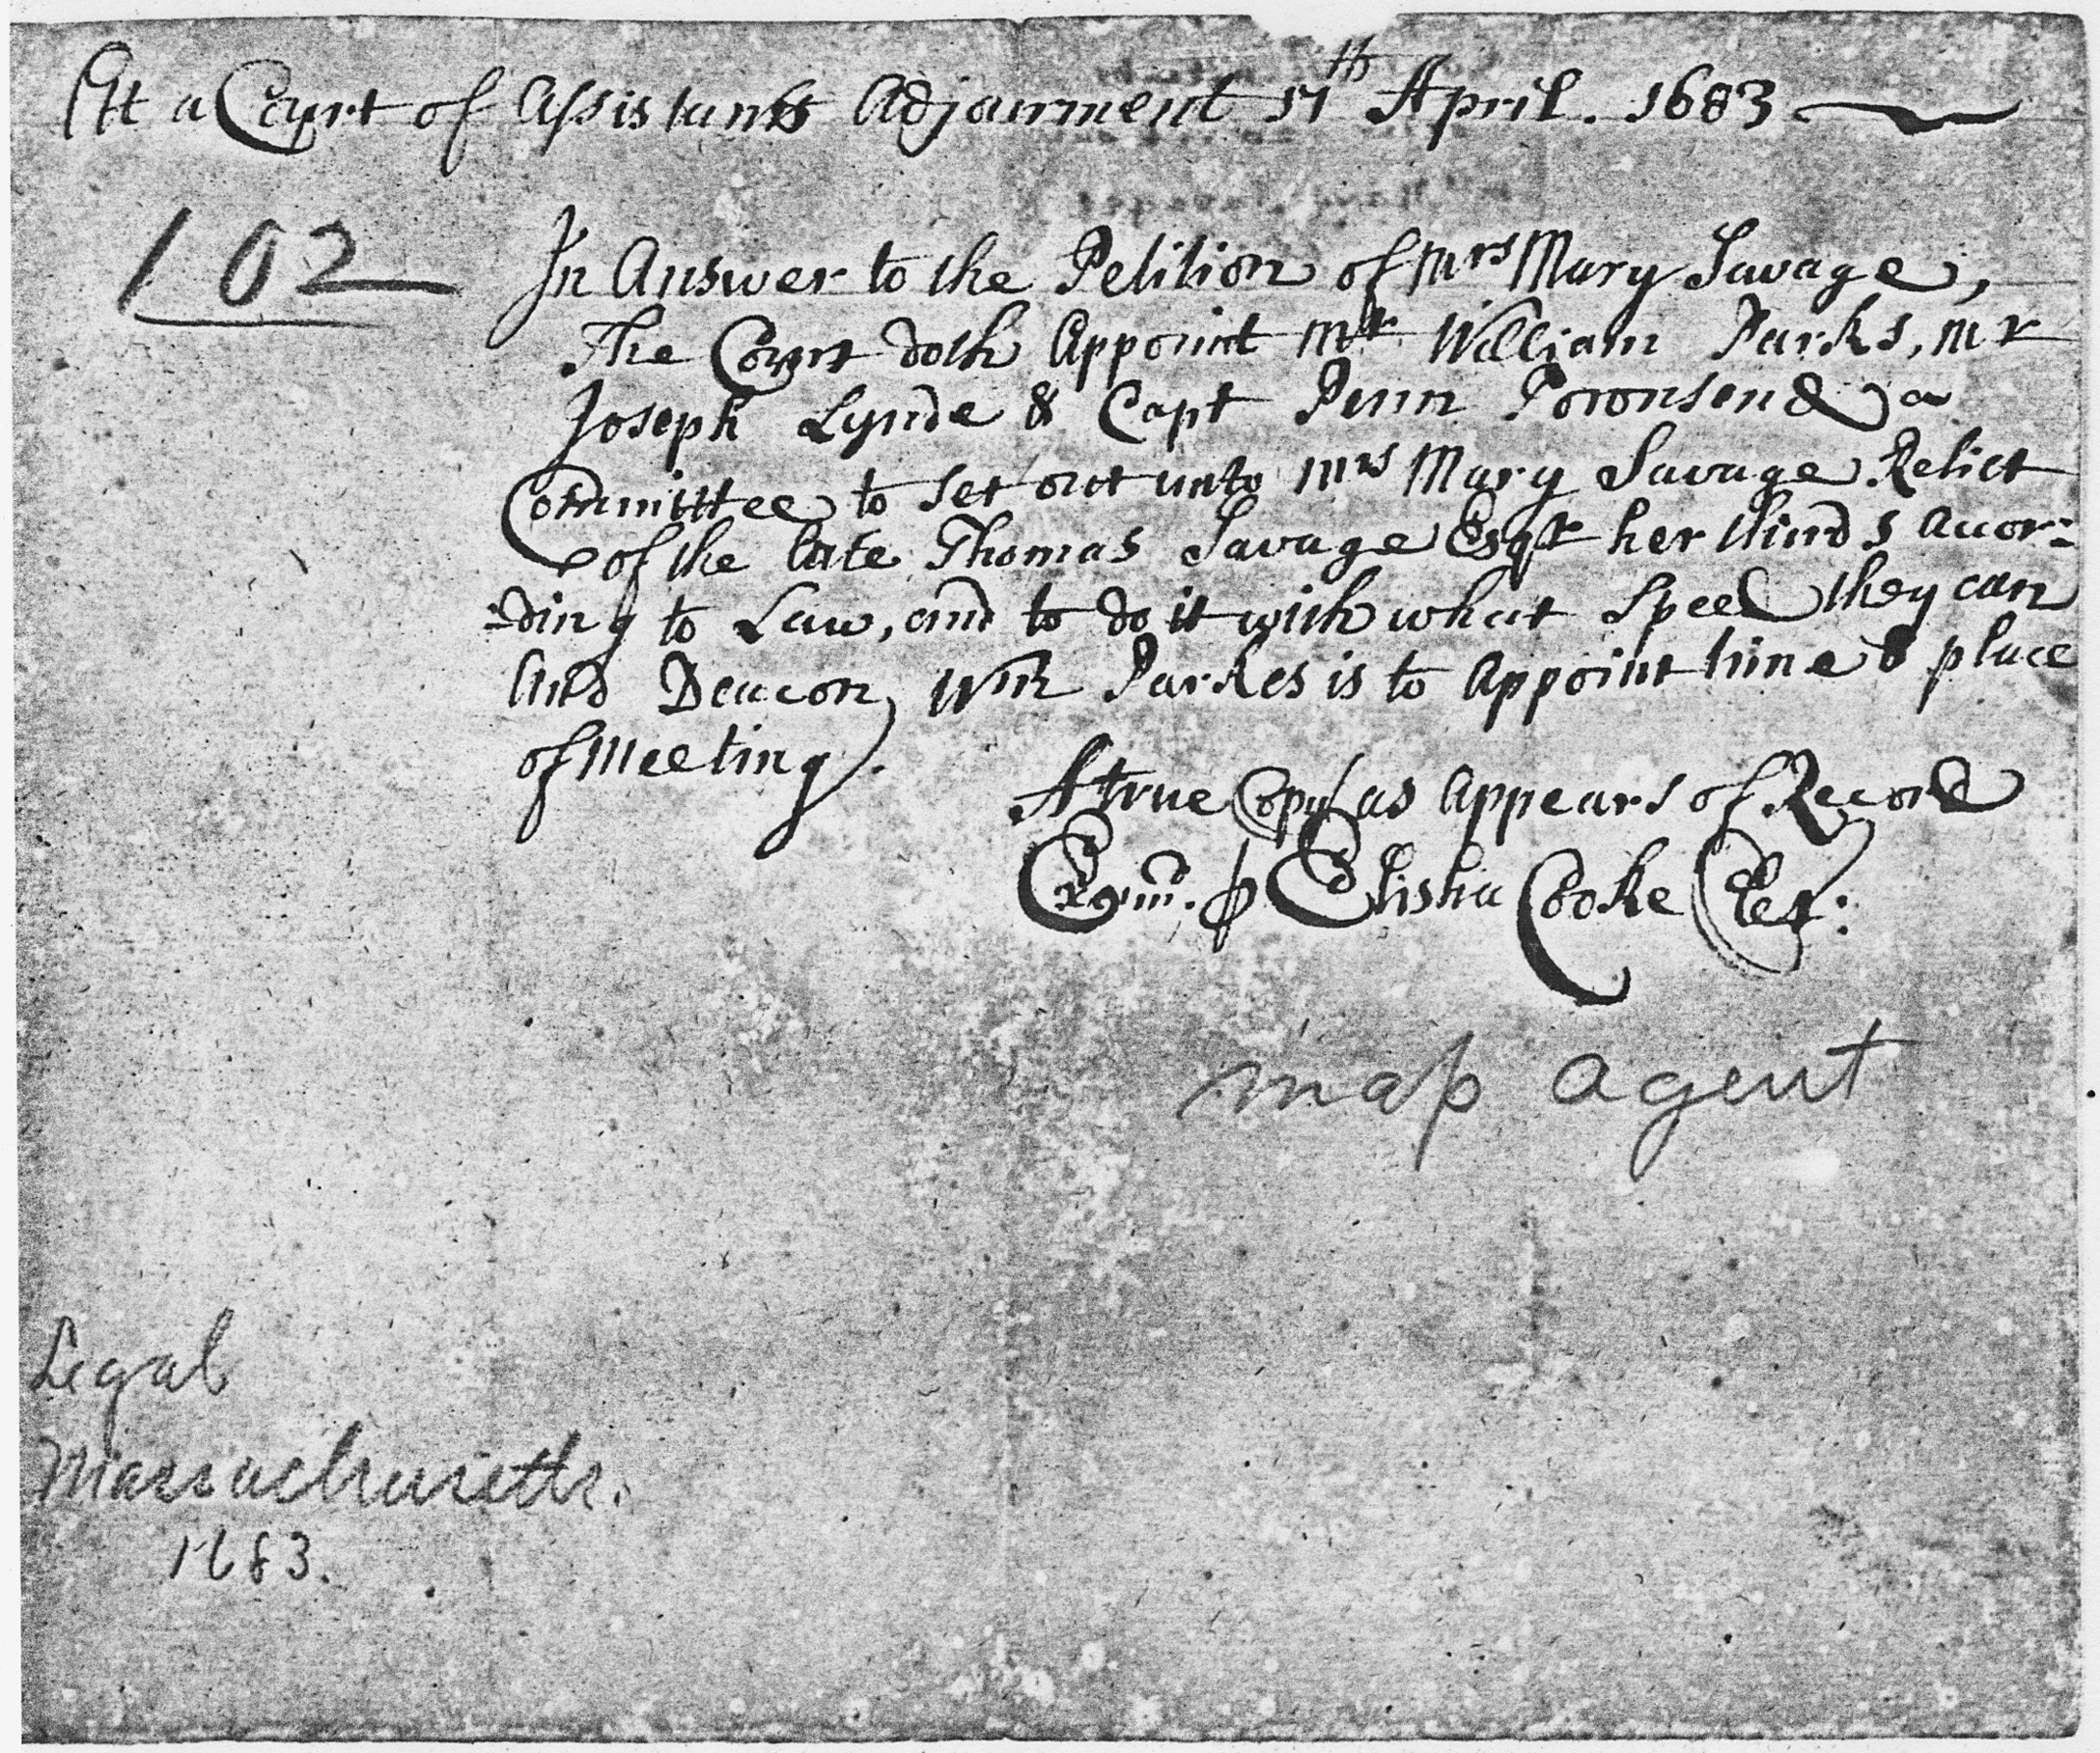 Att a Court of Assistants Adjournment 17th April. 1683
102
In Answer to the Petition of mrs Mary Savage,
The Court doth Appoint mr William Parks, mr
Joseph Lynde & Capt Penn Townsend a
Committee to set out unto mrs Mary Savage Relict
of the late Thomas Savage Esqr her thirds accor-
-ding to Law, and to do it with what speed they can
And Deacon Wm Parkes is to appoint time & place
of Meeting.
A true Copy as appears of Record
Exam'd. p Elisha Cooke Cler:
map agent
Legal
Massachusetts.
1683.